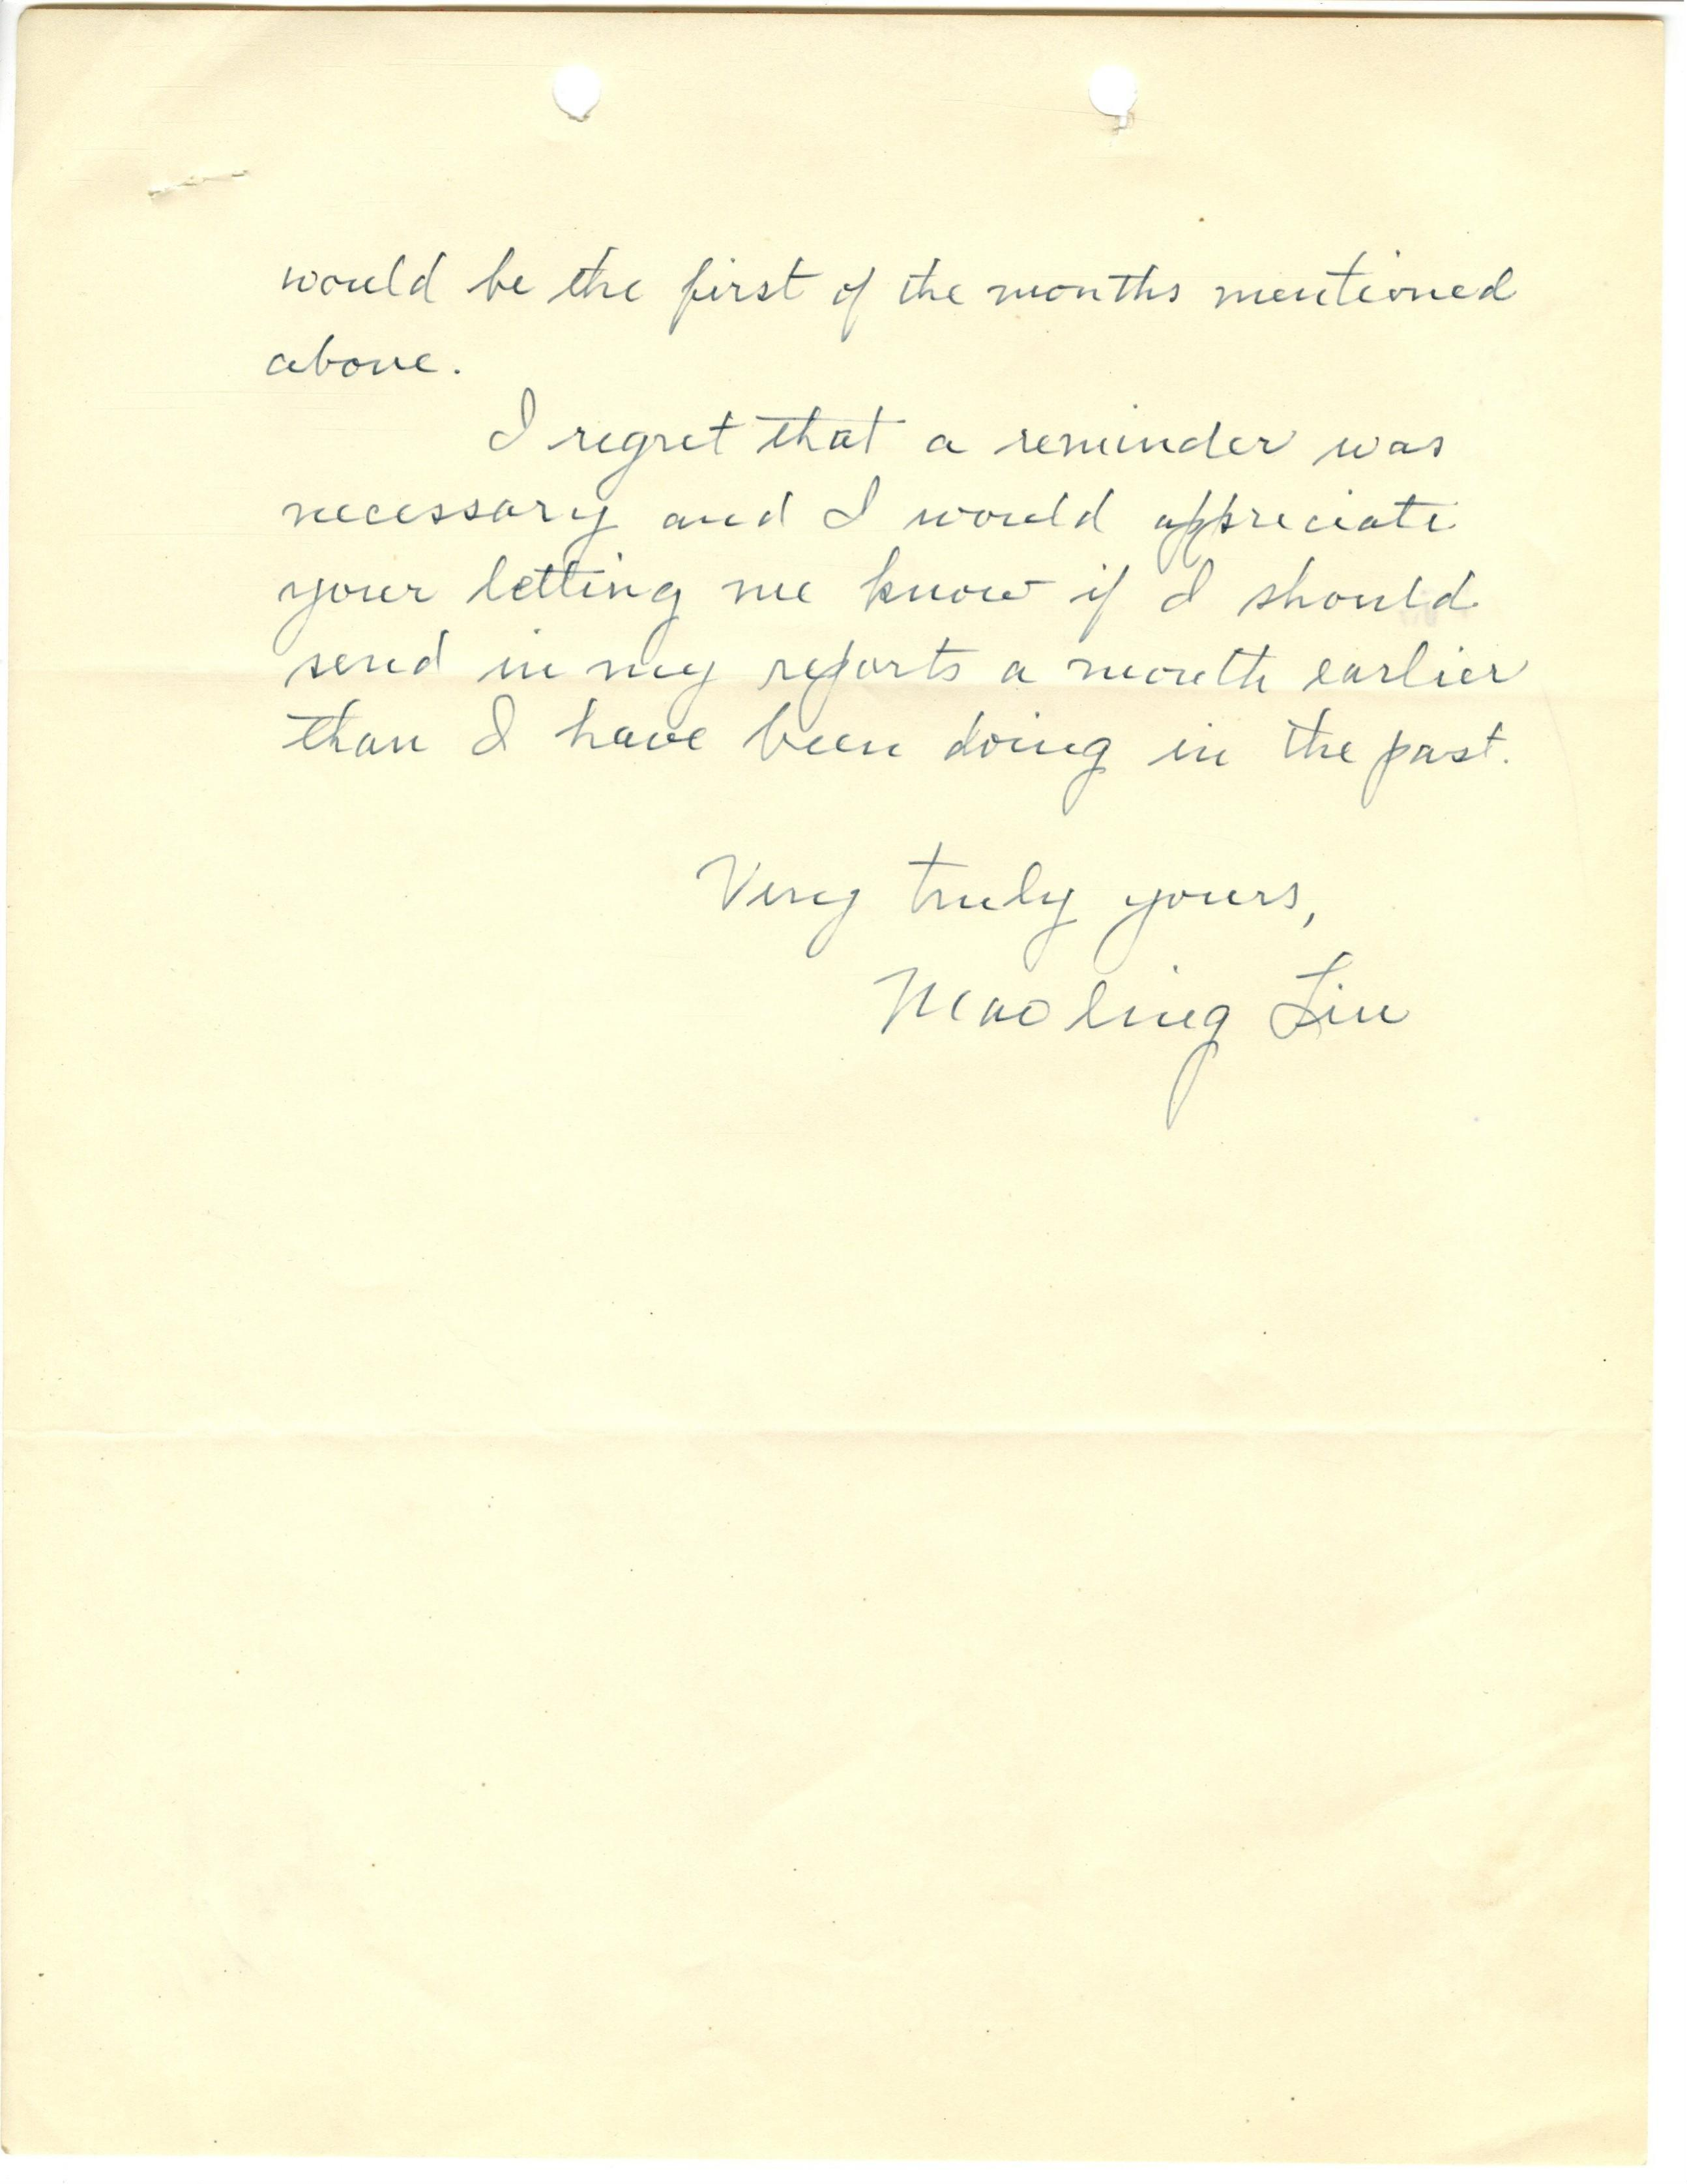 would be the first of the months mentioned
above.
I regret that a reminder was
necessary and I would appreciate
your letting me know if I should
send in my reports a month earlier
than I have been doing in the past.
Very truly yours,
Mao ling Liu